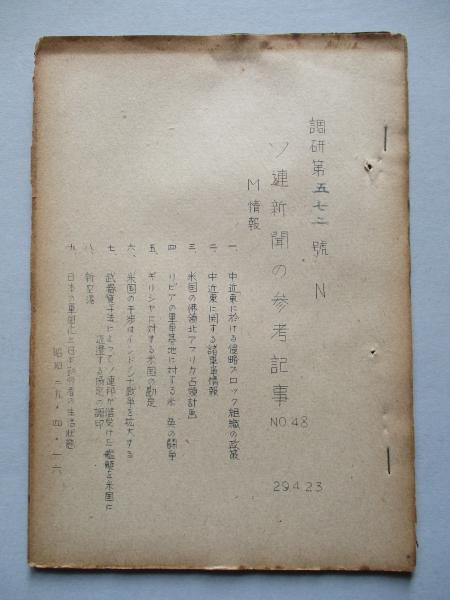 調研第五七二號 N
ソ連新聞の参考記事 NO.48
M情報
29.4.23
一、中近東に於ける侵略ブロック組織の政策
二、中近東に関する諸軍事情報
三、米国の佛領北アフリカ占領計画
四、リビアの軍事基地に対する米英の闘争
五、ギリシヤに対する米国の勘定
六、米国の干渉はインドシナ戦争を拡大する
七、武器貸与法によってソ連邦が借受けた艦艇を米国に
返還する協定の調印
八、新空港
九、日本の軍国化と日本労働者の生活状態
昭和二九・四・一六